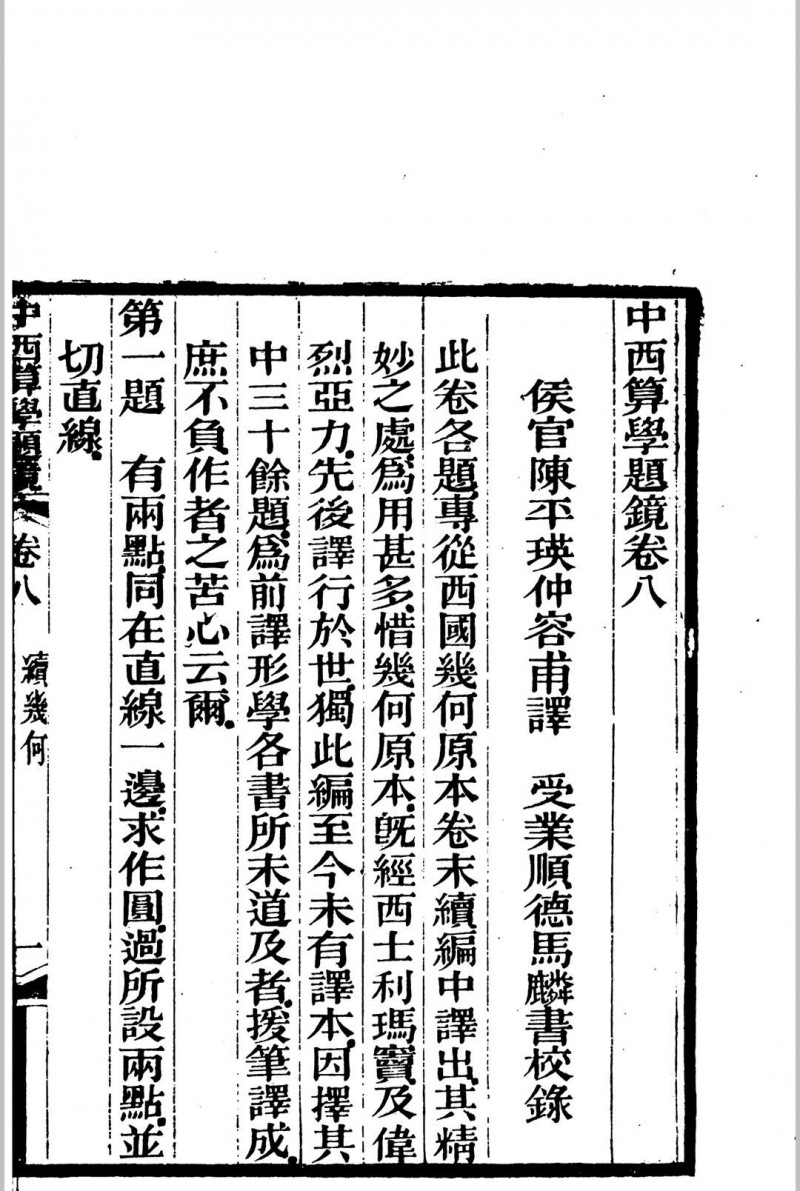 中西算學題鏡卷八
侯官陳平瑛仲容甫譯　受業順德馬麟書校錄
此卷各題，專從西國幾何原本卷末續編中譯出，其精
妙之處，爲用甚多，惜幾何原本，旣經西士利瑪竇，及偉
烈亞力，先後譯行於世，獨此編至今未有譯本，因擇其
中三十餘題，爲前譯形學各書所未道及者，援筆譯成，
庶不負作者之苦心云爾，
第一題　有兩點，同在直線一邊，求作圓，過所設兩點，並
切直線，
中西算學題鏡　卷八　續幾何　一